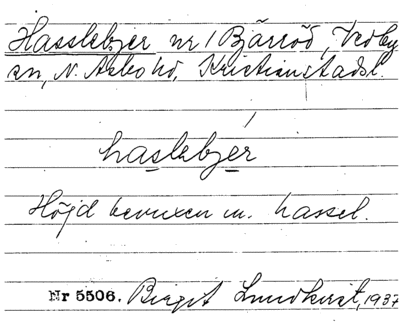 Hasslebjer nr 1 Bjärröd, Vedby
sn, N. Åsbo hd, Kristianstads l.
haslebjer
Höjd bevuxen m. hassel.
Nr 5506. Birgit Lundkvist, 1937